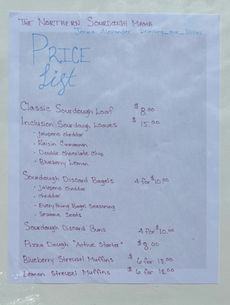 THE NORTHERN SOURDOUGH MAMA
PRICE
List
Classic Sourdough Loaf $8.00
Inclusion Sourdough Loaves $15.00
- jalapeno cheddar
- Raisin Cinnamon
- Double Chocolate Chip
- Blueberry Lemon
Sourdough Discard Bagels 4 for $10.00
- Jalapeno cheddar
- cheddar
- Everything Bagel Seasoning
- Sesame Seeds
Sourdough Discard Buns 4 for $10.00
Pizza Dough "Active Starter" $8.00
Blueberry Streusel Muffins $6 for 18.00
Lemon Streusel Muffins $6 for 18.00